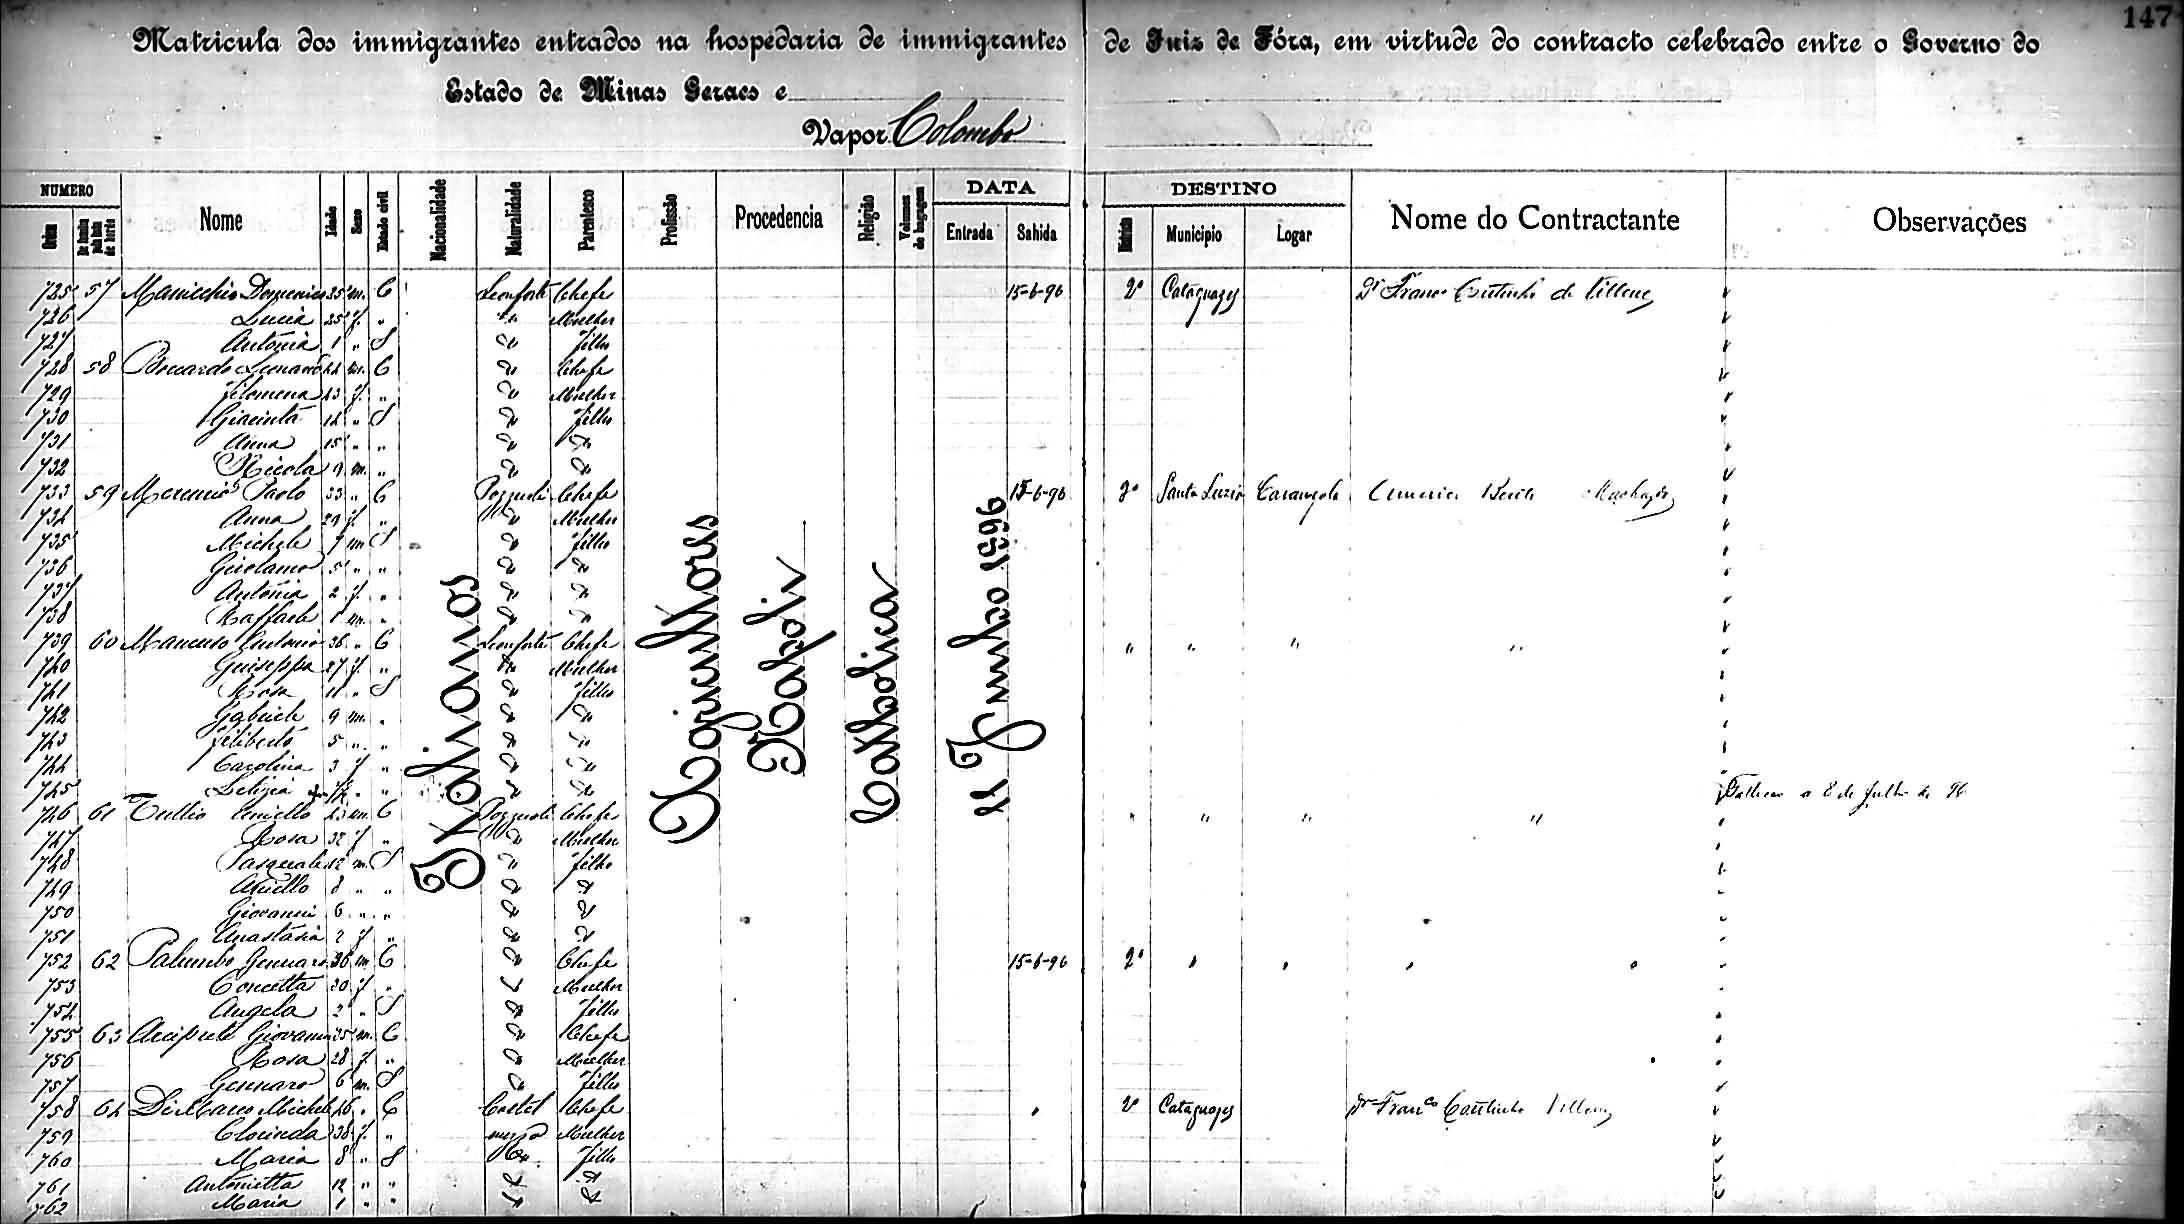 147
Matricula dos immigrantes entrados na hospedaria de immigrantes de Juiz de Fóra, em virtude do contracto celebrado entre o Governo do
Estado de Minas Geraes e
Vapor Colombo
NUMERO DATA DESTINO
Ordem Nome Idade Sexo Estado civil Nacionalidade Naturalidade Parentesco Profissão Procedencia Religião Volumes de bagagem Entrada Sahida Districto Municipio Logar Nome do Contractante Observações
Italianos
Agricultores
Napoli
Catholica
11 Junho 1896
725 57 Domenico 35 m. C Leonforte Chefe 15-6-96 2º Cataguazes Dr Franco Coutinho de
726 Lucia 25 f. " " Mulher
727 Antonia 1 " S " filho
728 58 44 m. C " Chefe
729 Filomena 43 f. " " Mulher
730 Giacinta 14 " S " filho
731 Anna 15 " " " "
732 Nicola 9 m. " " "
733 59 Paolo 33 " C Pozzuoli Chefe 15-6-96 2º Santa Luzia Carangola Machado
734 Anna 29 f. " " Mulher
735 Michele 7 m S " filho
736 Girolamo 5 " " " "
737 Antonia 2 f. " " "
738 Raffaele 1 m. " " "
739 60 Mancuso Antonio 36 " C Leonforte Chefe " " " "
740 Guiseppa 27 f. " " Mulher
741 Rosa 11 " S " filho
742 Gabriele 9 m. " " "
743 Filiberto 5 " " " "
744 Carolina 3 f " " "
745 Letizia + " " " " Falleceu a 8 de Julho de 96
746 61 Tullio Aniello 43 m. C Pozzuoli Chefe " " " "
747 Rosa 32 f " " Mulher
748 Pasquale 12 m. S " filho
749 Aniello 8 " " " "
750 Giovanni 6 " " " "
751 Anastasia 2 f " " "
752 62 Palumbo Gennaro 36 m C " Chefe 15-6-96 2º " " " "
753 Concetta 30 f " " Mulher
754 Angela 2 " S " filho
755 63 Giovanni 35 m. C " Chefe
756 Rosa 28 f. " " Mulher
757 Gennaro 6 m. S " filho
758 64 Di Marco Michele 46 " C Castel Chefe " 2º Cataguazes Dr Franco Coutinho
759 Clorinda 38 f. " Mulher
760 Maria 8 " S filho
761 Antonietta 12 " " " "
762 Maria 1 " " " "